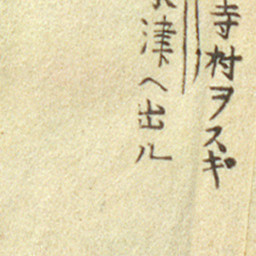 寺村ヲスギ
津ヘ出ル